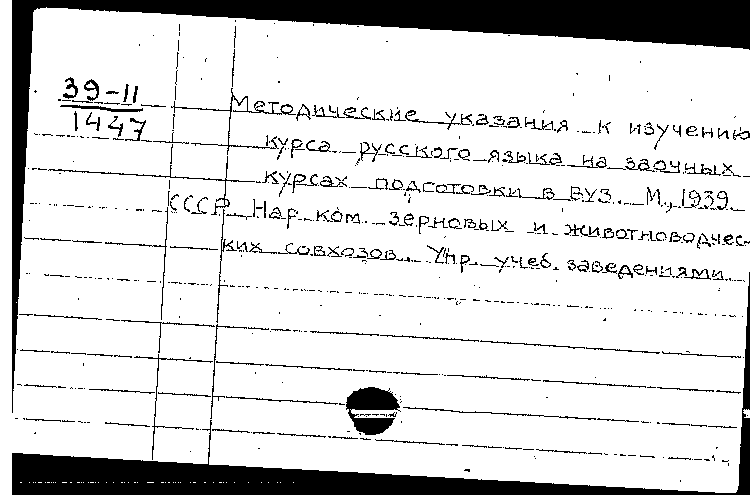 39-11
1447
Методические указания к изучению
курса русского языка на заочных
курсах подготовки в ВУЗ. М., 1939.
СССР. Нар. ком. зерновых и животноводчес-
ких совхозов. Упр. учеб. заведениями.